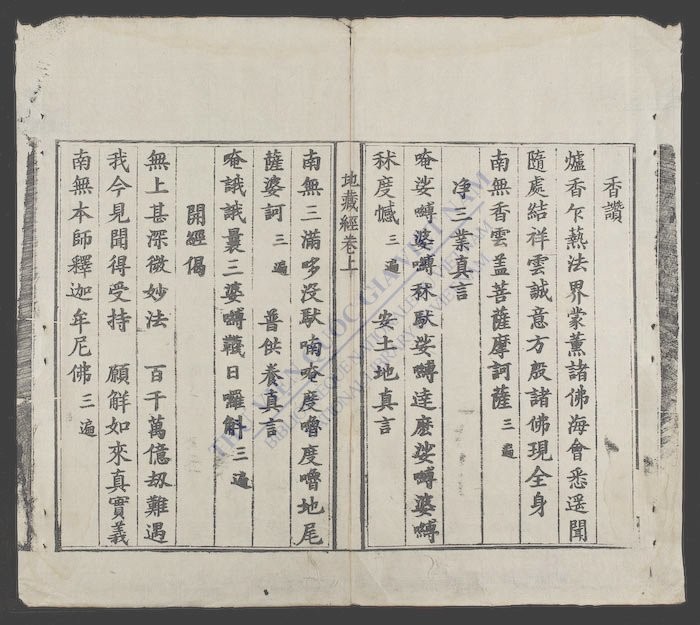 香讚
爐香乍爇法界蒙薰諸佛海會悉遥聞
隨處結祥雲誠意方殷諸佛現全身
南無香雲盖菩薩摩訶薩 三遍
净三業真言
唵娑嚩婆嚩秫馱娑嚩達麽娑嚩婆嚩
秫度憾 三遍 安土地真言
地藏經卷上
南無三滿哆没馱喃唵度嚕度嚕地尾
薩婆訶 三遍 普供养真言
唵誐誐曩三婆嚩韈日囉斛 三遍
開經偈
無上甚深微妙法 百千萬億刼難遇
我今見聞得受持 願觧如來真實義
南無本師釋迦牟尼佛 三遍
THƯ VIỆN QUỐC GIA VIỆT NAM
BIBLIOTHÈQUE NATIONALE DU VIETNAM
NATIONAL LIBRARY OF VIETNAM